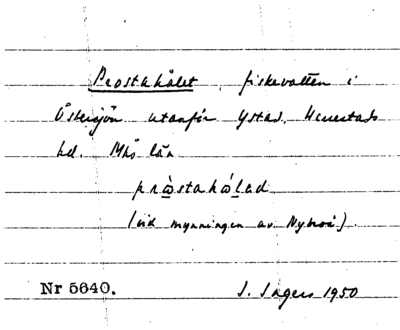 Prostahålet, fiskevatten i
Östersjön utanför Ystad. Herrestads
hd. Mhs län
prås̀tahå̀lad
(vid mynningen av Nybroå).
Nr 5640. J. Ingers 1950